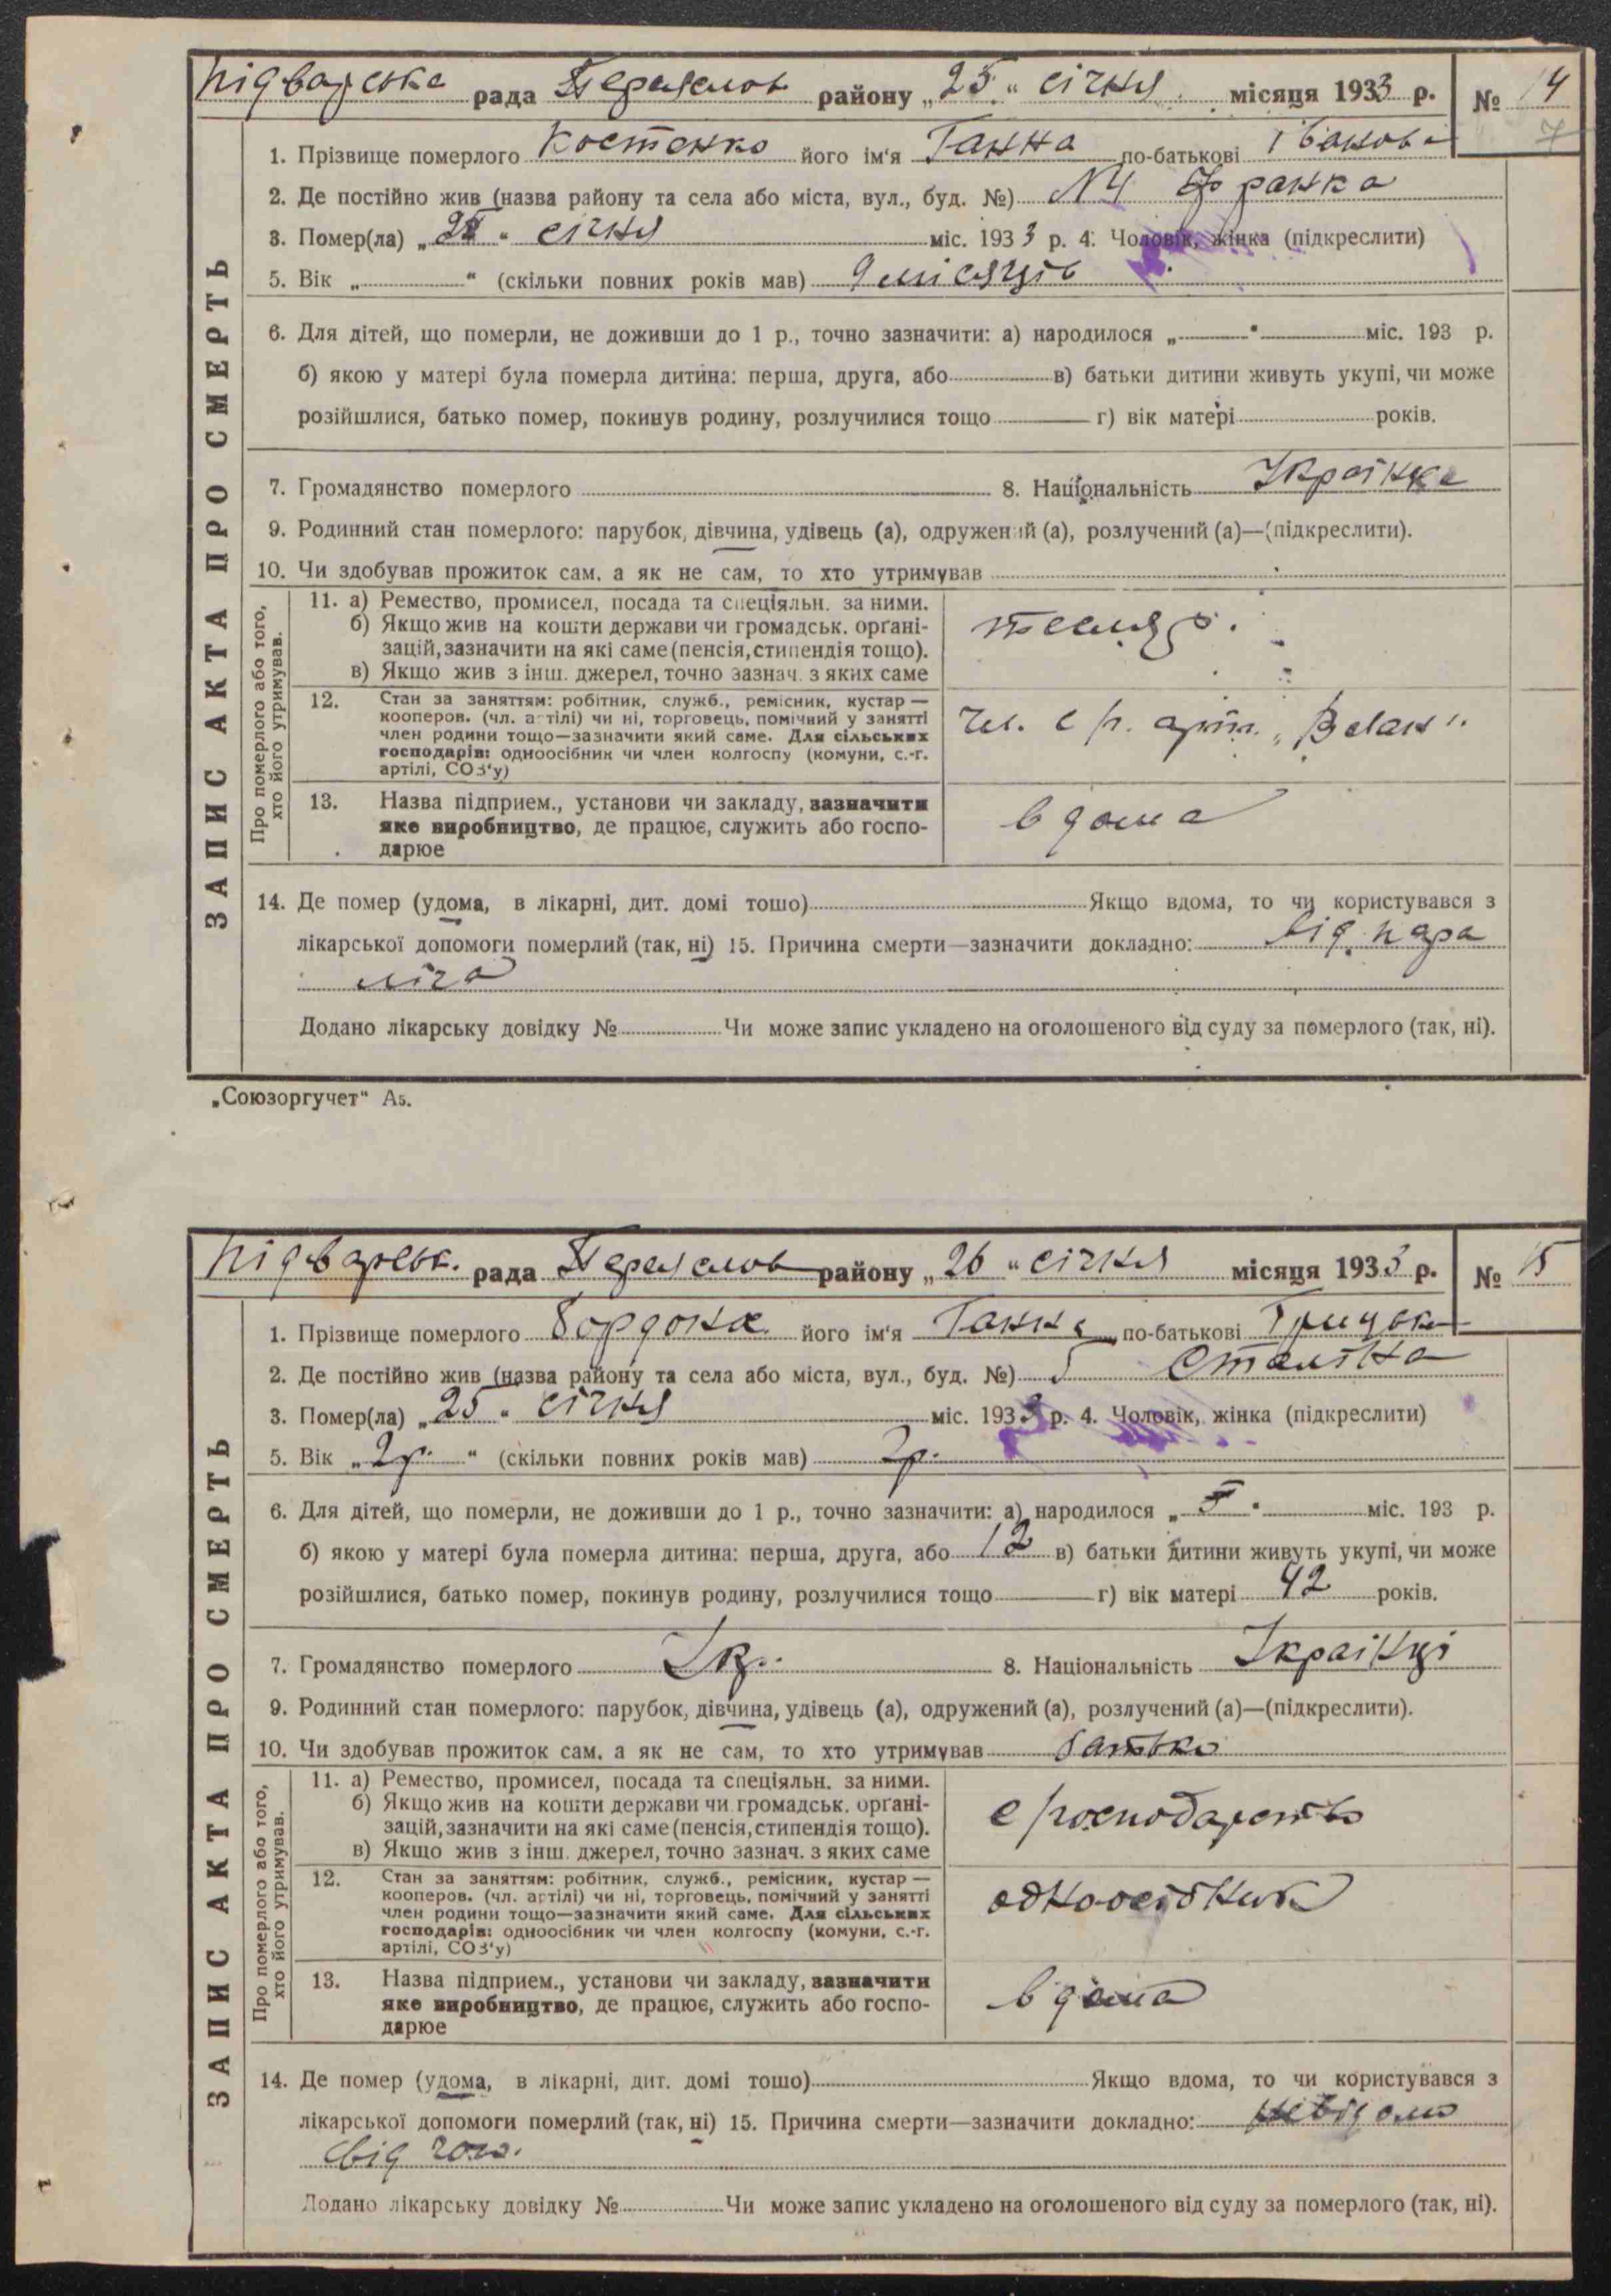 Підварська рада Переяслов району „25“ січня місяця 1933 р. № 14
7
1. Прізвище померлого Костенко його ім'я Ганна по-батькові Іванова
2. Де постійно жив (назва району та села або міста, вул., буд. №) №4 Франка
3. Помер(ла) „25“ січня міс. 1933 р. 4. Чоловік, жінка (підкреслити)
5. Вік „ “ (скільки повних років мав) 9 місяців
6. Для дітей, що померли, не доживши до 1 р., точно зазначити: а) народилося „ “ міс. 193 р.
б) якою у матері була померла дитина: перша, друга, або в) батьки дитини живуть укупі, чи може
розійшлися, батько помер, покинув родину, розлучилися тощо г) вік матері років.
7. Громадянство померлого 8. Національність Українка
9. Родинний стан померлого: парубок, дівчина, удівець (а), одружений (а), розлучений (а)—(підкреслити).
10. Чи здобував прожиток сам, а як не сам, то хто утримував
ЗАПИС АКТА ПРО СМЕРТЬ
Про померлого або того, хто його утримував.
11. а) Ремество, промисел, посада та спеціяльн. за ними.
б) Якщо жив на кошти держави чи громадськ. органі-
зацій, зазначити на які саме (пенсія, стипендія тощо).
в) Якщо жив з інш. джерел, точно зазнач. з яких саме
тесляр.
12. Стан за заняттям: робітник, служб., ремісник, кустар —
кооперов. (чл. артілі) чи ні, торговець, помічний у занятті
член родини тощо—зазначити який саме. Для сільських
господарів: одноосібник чи член колгоспу (комуни, с.-г.
артілі, СОЗ'у)
чл. с г. арт.
13. Назва підприєм., установи чи закладу, зазначити
яке виробництво, де працює, служить або госпо-
дарює
вдома
14. Де помер (удома, в лікарні, дит. домі тощо) Якщо вдома, то чи користувався з
лікарської допомоги померлий (так, ні) 15. Причина смерти—зазначити докладно: від пара
ліча
Додано лікарську довідку № Чи може запис укладено на оголошеного від суду за померлого (так, ні).
„Союзоргучет“ А5.
Підварськ. рада Переяслов району „26“ січня місяця 1933 р. № 15
1. Прізвище померлого його ім'я Ганна по-батькові Грицьк
2. Де постійно жив (назва району та села або міста, вул., буд. №) Сталіна
3. Помер(ла) „25“ січня міс. 1933 р. 4. Чоловік, жінка (підкреслити)
5. Вік „2р.“ (скільки повних років мав) 2р.
6. Для дітей, що померли, не доживши до 1 р., точно зазначити: а) народилося „ “ міс. 193 р.
б) якою у матері була померла дитина: перша, друга, або 12 в) батьки дитини живуть укупі, чи може
розійшлися, батько помер, покинув родину, розлучилися тощо г) вік матері 42 років.
7. Громадянство померлого Укр. 8. Національність Українці
9. Родинний стан померлого: парубок, дівчина, удівець (а), одружений (а), розлучений (а)—(підкреслити).
10. Чи здобував прожиток сам, а як не сам, то хто утримував батько
ЗАПИС АКТА ПРО СМЕРТЬ
Про померлого або того, хто його утримував.
11. а) Ремество, промисел, посада та спеціяльн. за ними.
б) Якщо жив на кошти держави чи громадськ. органі-
зацій, зазначити на які саме (пенсія, стипендія тощо).
в) Якщо жив з інш. джерел, точно зазнач. з яких саме
с господарство
12. Стан за заняттям: робітник, служб., ремісник, кустар —
кооперов. (чл. артілі) чи ні, торговець, помічний у занятті
член родини тощо—зазначити який саме. Для сільських
господарів: одноосібник чи член колгоспу (комуни, с.-г.
артілі, СОЗ'у)
одноосібник
13. Назва підприєм., установи чи закладу, зазначити
яке виробництво, де працює, служить або госпо-
дарює
вдома
14. Де помер (удома, в лікарні, дит. домі тощо) Якщо вдома, то чи користувався з
лікарської допомоги померлий (так, ні) 15. Причина смерти—зазначити докладно: невідомо
від чого.
Додано лікарську довідку № Чи може запис укладено на оголошеного від суду за померлого (так, ні).